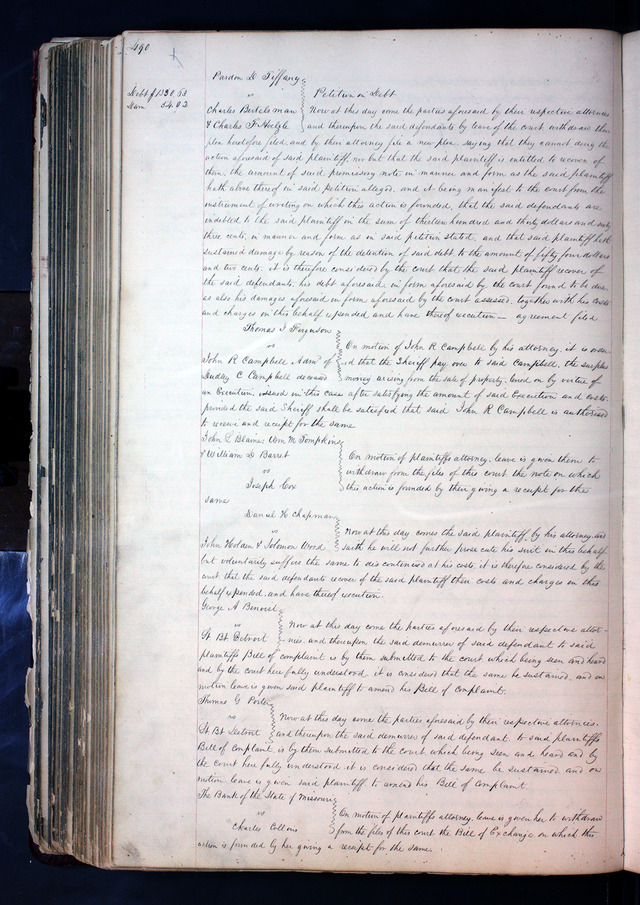 490
Pardon D Tiffany
vs Petition in Debt
Debt $1330.63
Dam 54.02
Charles Butelsman Now at this day come the parties aforesaid by their respective attornies
& Charles F and thereupon the said defendants by leave of the court withdraw their
plea heretofore filed, and by their attorney file a new plea, saying that they cannot deny the
action aforesaid of said plaintiff nor but that the said plaintiff is entitled to recover of
them the amount of said promissory note in manner and form as the said plaintiff
hath above thereof in said Petition alleged, and it being manifest to the court from the
instrument of writing on which this action is founded, that the said defendants are
indebted to the said plaintiff in the sum of thirteen hundred and thirty dollars and sixty
three cents, in manner and form as in said petition stated, and that said plaintiff hath
sustained damage by reason of the detention of said debt to the amount of fifty four dollars
and two cents. it is therefore considered by the court that the said plaintiff recover of
the said defendants, his debt aforesaid, in form aforesaid by the court found to be due
as also his damages aforesaid in form aforesaid by the court assessed, together with his costs
and charges in this behalf expended and have thereof execution — agreement filed
Thomas J Ferguson
vs On motion of John R Campbell by his attorney, it is order
John R Campbell, Admr of ed that the Sheriff pay over to said Campbell, the surplus
Dudley C Campbell deceased money arising from the sale of property, levied on by virtue of
an Execution, issued in this case after satisfying the amount of said Execution and costs
provided the said Sheriff shall be satisfied that said John R Campbell is authorised
to receive and receipt for the same
John C Blaine, Wm M Tompkins
& William D Barret On motion of plaintiffs attorney, leave is given them to
vs withdraw from the files of this court the note on which
Joseph Cox this action is founded by their giving a receipt for the
same
Daniel H Chapman
vs Now at this day comes the said plaintiff, by his attorney, and
John Holden & Solomon Word saith he will not further prosecute his suit in this behalf
but voluntarily suffers the same to be discontinued at his costs, it is therefore considered by the
court that the said defendants recover of the said plaintiff their costs and charges in this
behalf expended, and have thereof execution.
George A
vs Now at this day come the parties aforesaid by their respective attor-
St. Bt Detroit nies, and thereupon the said demurrer of said defendant to said
plaintiffs Bill of complaint is by them submitted to the court which being seen and heard
and by the court here fully understood, it is considered that the same be sustained, and on
motion leave is given said plaintiff to amend his Bill of Complaint.
Thomas G Porter
vs Now at this day come the parties aforesaid by their respective attornies.
St. Bt Detroit and thereupon the said demurrer of said defendant, to said plaintiffs
Bill of Complaint, is by them submitted to the court, which being seen and heard and by
the court here fully understood it is considered that the same be sustained and on
motion leave is given said plaintiff, to amend his Bill of Complaint.
The Bank of the State of Missouri
vs On motion of plaintiffs attorney, leave is given her to withdraw
Charles Collins from the files of this court the Bill of Exchange on which this
action is founded by her giving a receipt for the same.